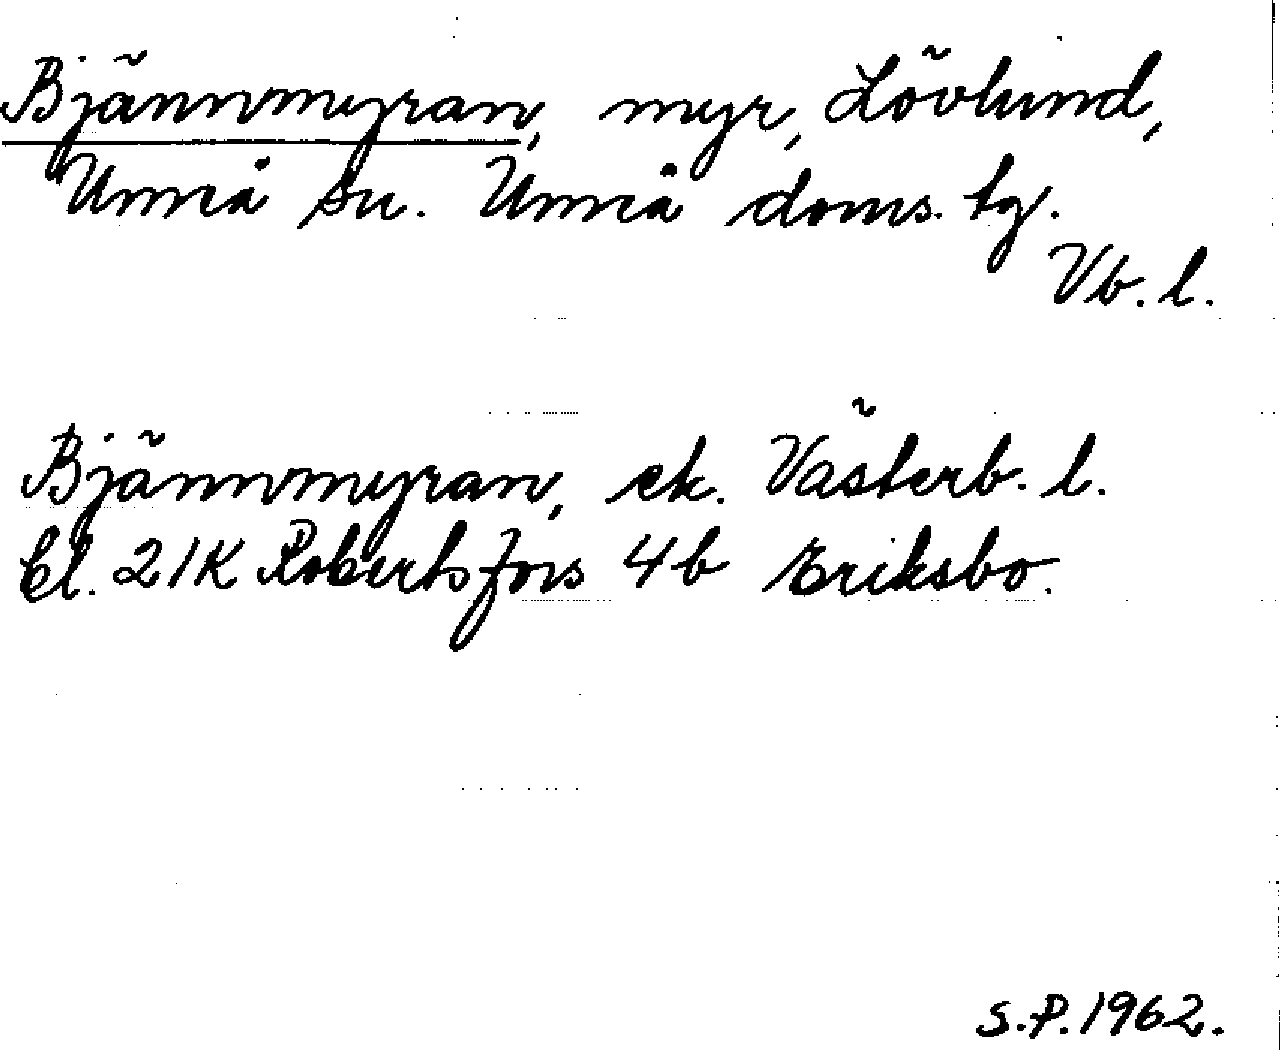 Bjännmyran, myr, Lövlund,
Umeå sn. Umeå doms. tg.
Vb. l.
Bjännmyran, ek. Västerb. l.
bl. 21K Robertsfors 4b Eriksbo.
S.P. 1962.